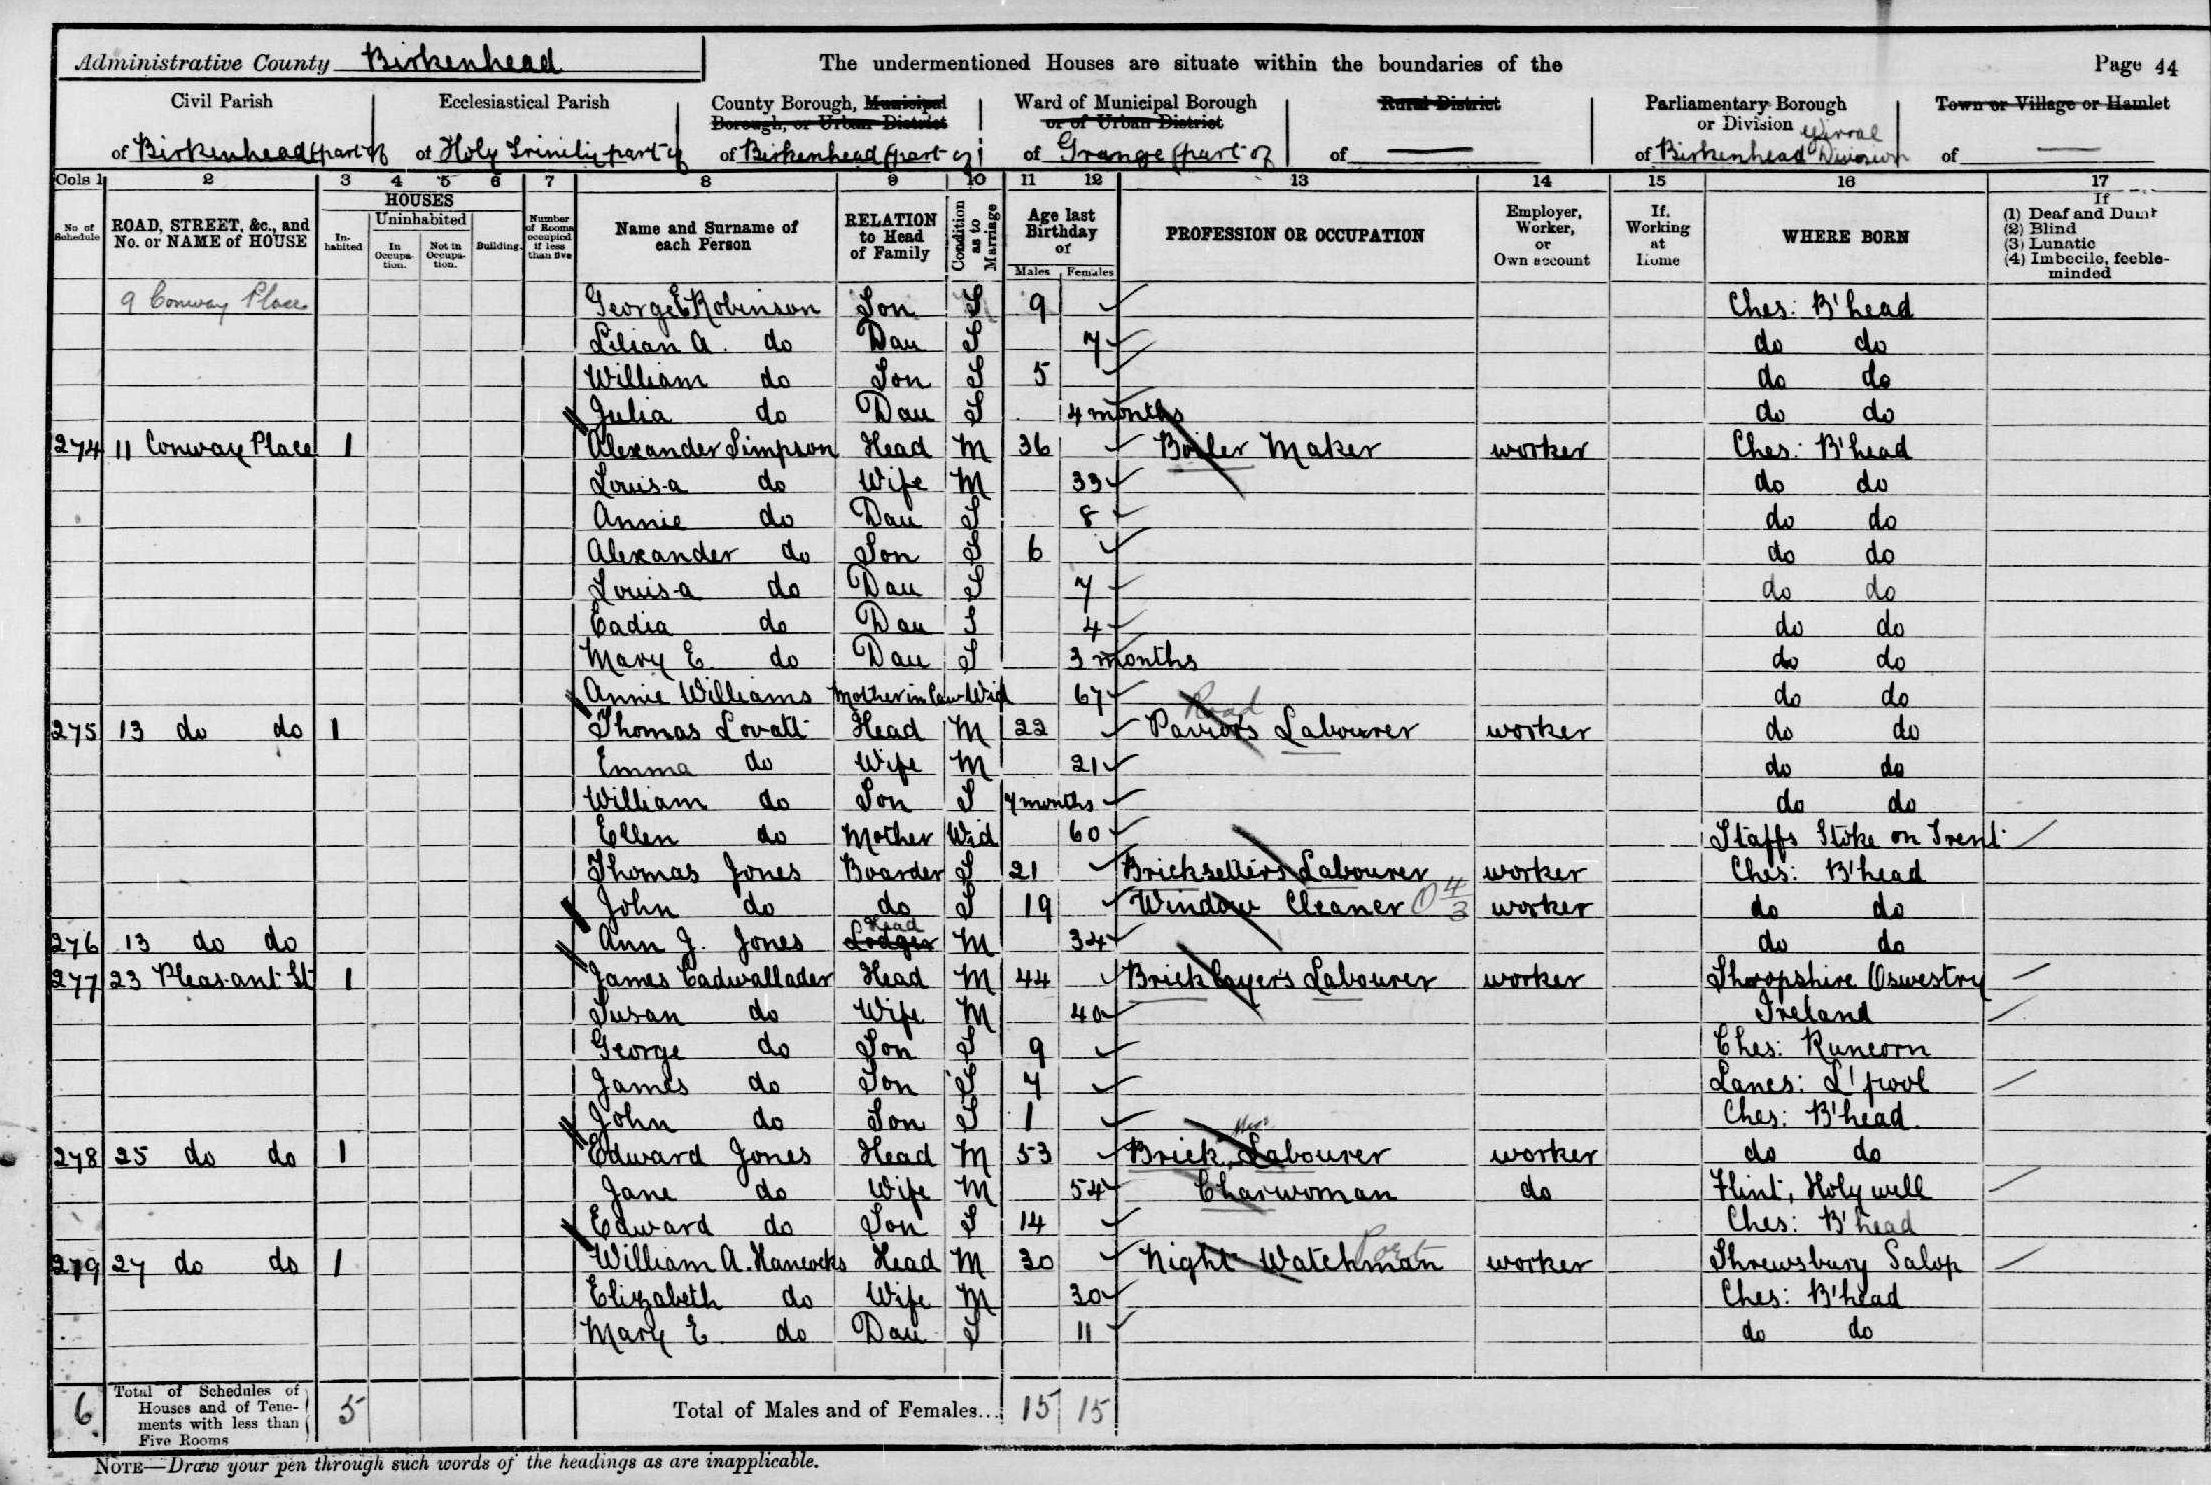 Administrative County Birkenhead The undermentioned Houses are situate within the boundaries of the Page 44
Civil Parish Ecclesiastical Parish County Borough, Municipal Borough, or Urban District Ward of Municipal Borough or of Urban District Rural District Parliamentary Borough or Division Town or Village or Hamlet
of Birkenhead (part of of Holy Trinity part of of Birkenhead (part of) of Grange (part of of — of Birkenhead Wirral Division of —
Cols 1 2 3 4 5 6 7 8 9 10 11 12 13 14 15 16 17
No. of Schedule ROAD, STREET, &c., and No. or NAME of HOUSE HOUSES Inhabited Uninhabited In Occupation. Not in Occupation. Building. Number of Rooms occupied if less than five Name and Surname of each Person RELATION to Head of Family Condition as to Marriage Age last Birthday of Males Females PROFESSION OR OCCUPATION Employer, Worker, or Own account If Working at Home WHERE BORN If (1) Deaf and Dumb (2) Blind (3) Lunatic (4) Imbecile, feeble-minded
9 Conway Place George E Robinson Son S 9 Ches: B'head
Lilian A. do Dau S 7 do do
William do Son S 5 do do
Julia do Dau S 4 months do do
274 11 Conway Place 1 Alexander Simpson Head M 36 Boiler Maker worker Ches: B'head
Louisa do Wife M 33 do do
Annie do Dau S 8 do do
Alexander do Son S 6 do do
Louisa do Dau S 7 do do
Eadia do Dau S 4 do do
Mary E. do Dau S 3 months do do
Annie Williams Mother in law Wid 67 do do
275 13 do do 1 Thomas Lovatt Head M 22 Road Paviors Labourer worker do do
Emma do Wife M 21 do do
William do Son S 7 months do do
Ellen do Mother Wid 60 Staffs Stoke on Trent
Thomas Jones Boarder S 21 Bricksetters Labourer worker Ches: B'head
John do do S 19 Window Cleaner 4/3 worker do do
276 13 do do Ann J. Jones Lodger Head M 34 do do
277 23 Pleasant St 1 James Cadwallader Head M 44 Bricklayers Labourer worker Shropshire Oswestry
Susan do Wife M 40 Ireland
George do Son S 9 Ches: Runcorn
James do Son S 7 Lancs: L'pool
John do Son S 1 Ches: B'head.
278 25 do do 1 Edward Jones Head M 53 Brick Labourer worker do do
Jane do Wife M 54 Charwoman do Flint, Holywell
Edward do Son S 14 Ches: B'head
279 27 do do 1 William A. Hancocks Head M 30 Night Watchman worker Shrewsbury Salop
Elizabeth do Wife M 30 Ches: B'head
Mary E. do Dau S 11 do do
6 Total of Schedules of Houses and of Tenements with less than Five Rooms 5 Total of Males and of Females... 15 15
NOTE—Draw your pen through such words of the headings as are inapplicable.